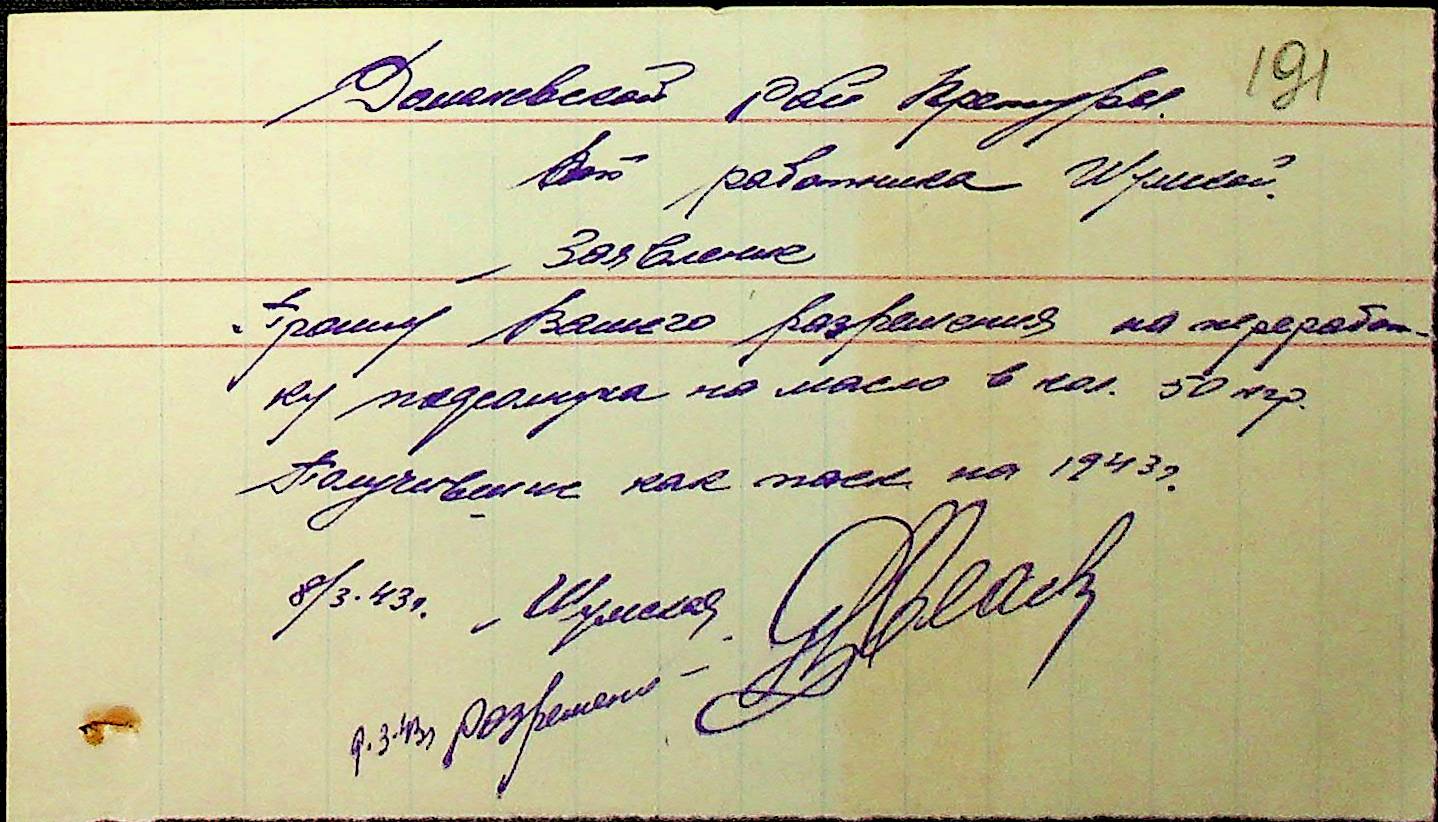 191
Доманевской рай Претуры.
Вет работника Шумской.
Заявление
Прошу Вашего разрешения на переработ-
ку подсолнуха на масло в кол. 50 кгр.
Полученные как паек на 1943 г.
8/3.43 г. Шумская
9.3.43 г. разрешено